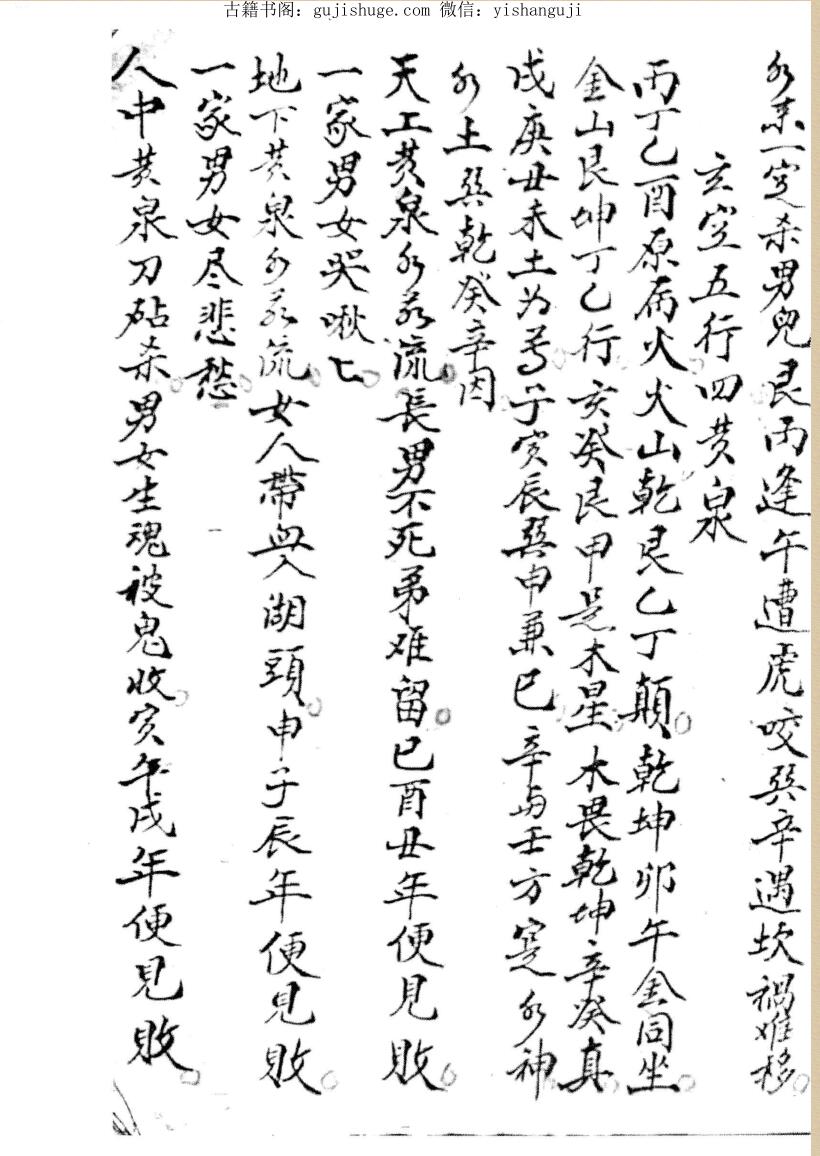 古籍书阁：gujishuge.com 微信：yishanguji
水来一定杀男兒艮丙逢午遭虎咬巽辛遇坎禍难移
玄空五行四黄泉
丙丁乙酉原屬火火山乾艮乙丁顛乾坤卯午金同坐
金山艮坤丁乙行亥癸艮甲是木星木畏乾坤辛癸真
戌庚丑未土为尊子寅辰巽申兼巳辛与壬方寔水神
水土巽乾癸辛因
天上黄泉水若流長男不死弟难留巳酉丑年便見敗
一家男女哭啾匕
地下黄泉水若流女人帶血入湖頭申子辰年便見敗
一家男女尽悲愁
人中黄泉刀砧杀男女生魂被鬼收寅午戌年便見敗